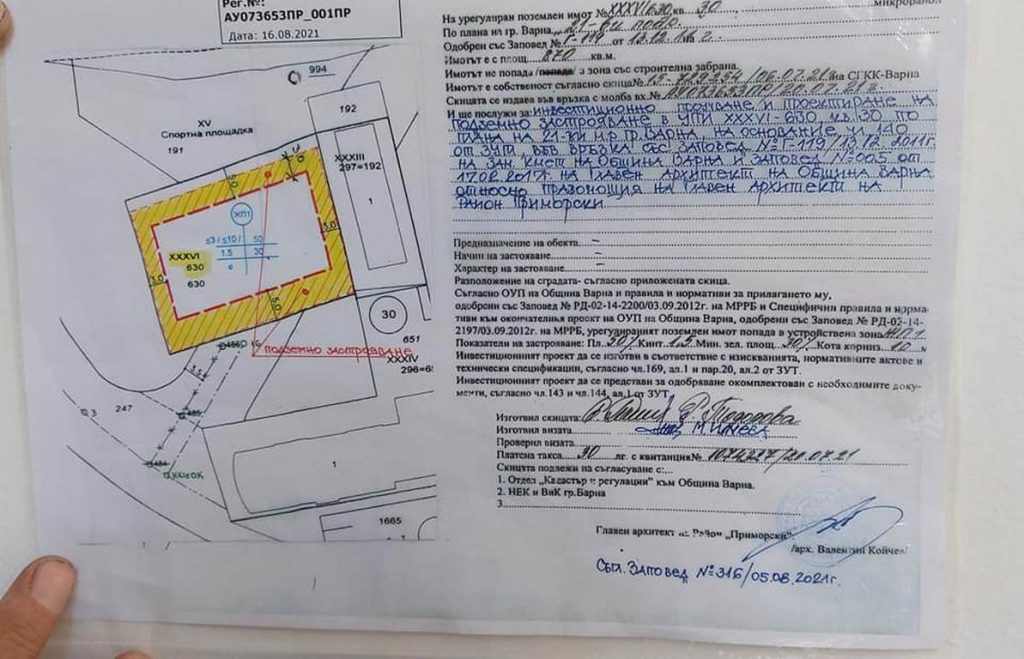 Рег.№:
АУ073653ПР_001ПР
Дата: 16.08.2021
994
192
XV
Спортна площадка
191
XXXIII
297=192
1
5.0
ЖП1
≤3/≤10/ 50
1.5 30
е
3.0
XXXVI
630
630
3.0
5.0
30
651
подземно застрояване
XXXIV
3.5
247
1
1665
микрорайон
На урегулиран поземлен имот № XXXVI630, кв. 30
По плана на гр. Варна
Одобрен със Заповед № Г-119 от 13.12.11 г.
Имотът е с площ 870 кв.м.
Имотът не попада /попада/ в зона със строителна забрана.
Имотът е собственост съгласно скица № /06.07.21г на СГКК-Варна
Скицата се издава във връзка с молба вх. № АУ073653ПР/20.07.21г
И ще послужи за: инвестиционно проучване и проектиране на
подземно застрояване в УПИ XXXVI-630, кв. 30 по
плана на 21-ви м.р. гр. Варна на основание чл. 140
от ЗУТ във връзка със заповед № Г-119/13.12.2011г.
на зам. кмет на Община Варна и заповед № 005 от
17.02.2017г. на Главен архитект на Община Варна
относно правомощия на Главен архитект на
район Приморски
Предназначение на обекта. –
Начин на застояване. –
Характер на застояване. –
Разположение на сградата- съгласно приложената скица.
Съгласно ОУП на Община Варна и правила и нормативи за прилагането му,
одобрени със Заповед № РД-02-14-2200/03.09.2012г. на МРРБ и Специфични правила и норма-
тиви към окончателния проект на ОУП на Община Варна, одобрени със Заповед № РД-02-14-
2197/03.09.2012г. на МРРБ, урегулираният поземлен имот попада в устройствена зона ЖП1
Показатели на застрояване: Пл. 50% Кинт. 1.5 Мин. зел. площ. 30% Кота корниз 10 м
Инвестиционният проект да се изготви в съответствие с изискванията, нормативните актове и
технически спецификации, съгласно чл.169, ал.1 и пар.20, ал.2 от ЗУТ.
Инвестиционният проект да се представи за одобряване окомплектован с необходимите доку-
менти, съгласно чл.143 и чл.144, ал.1 от ЗУТ.
Изготвил скицата: Тодорова
Изготвил визата
Проверил визата
Платена такса 30 лв. с квитанция № /20.07.21
Скицата подлежи на съгласуване с:
1. Отдел „Кадастър и регулации" към Община Варна.
2. НЕК и ВиК гр.Варна
3
Главен архитект на Район „Приморски"
/арх. Валентин Койчев/
Съгл. Заповед № 316/05.08.2021г.